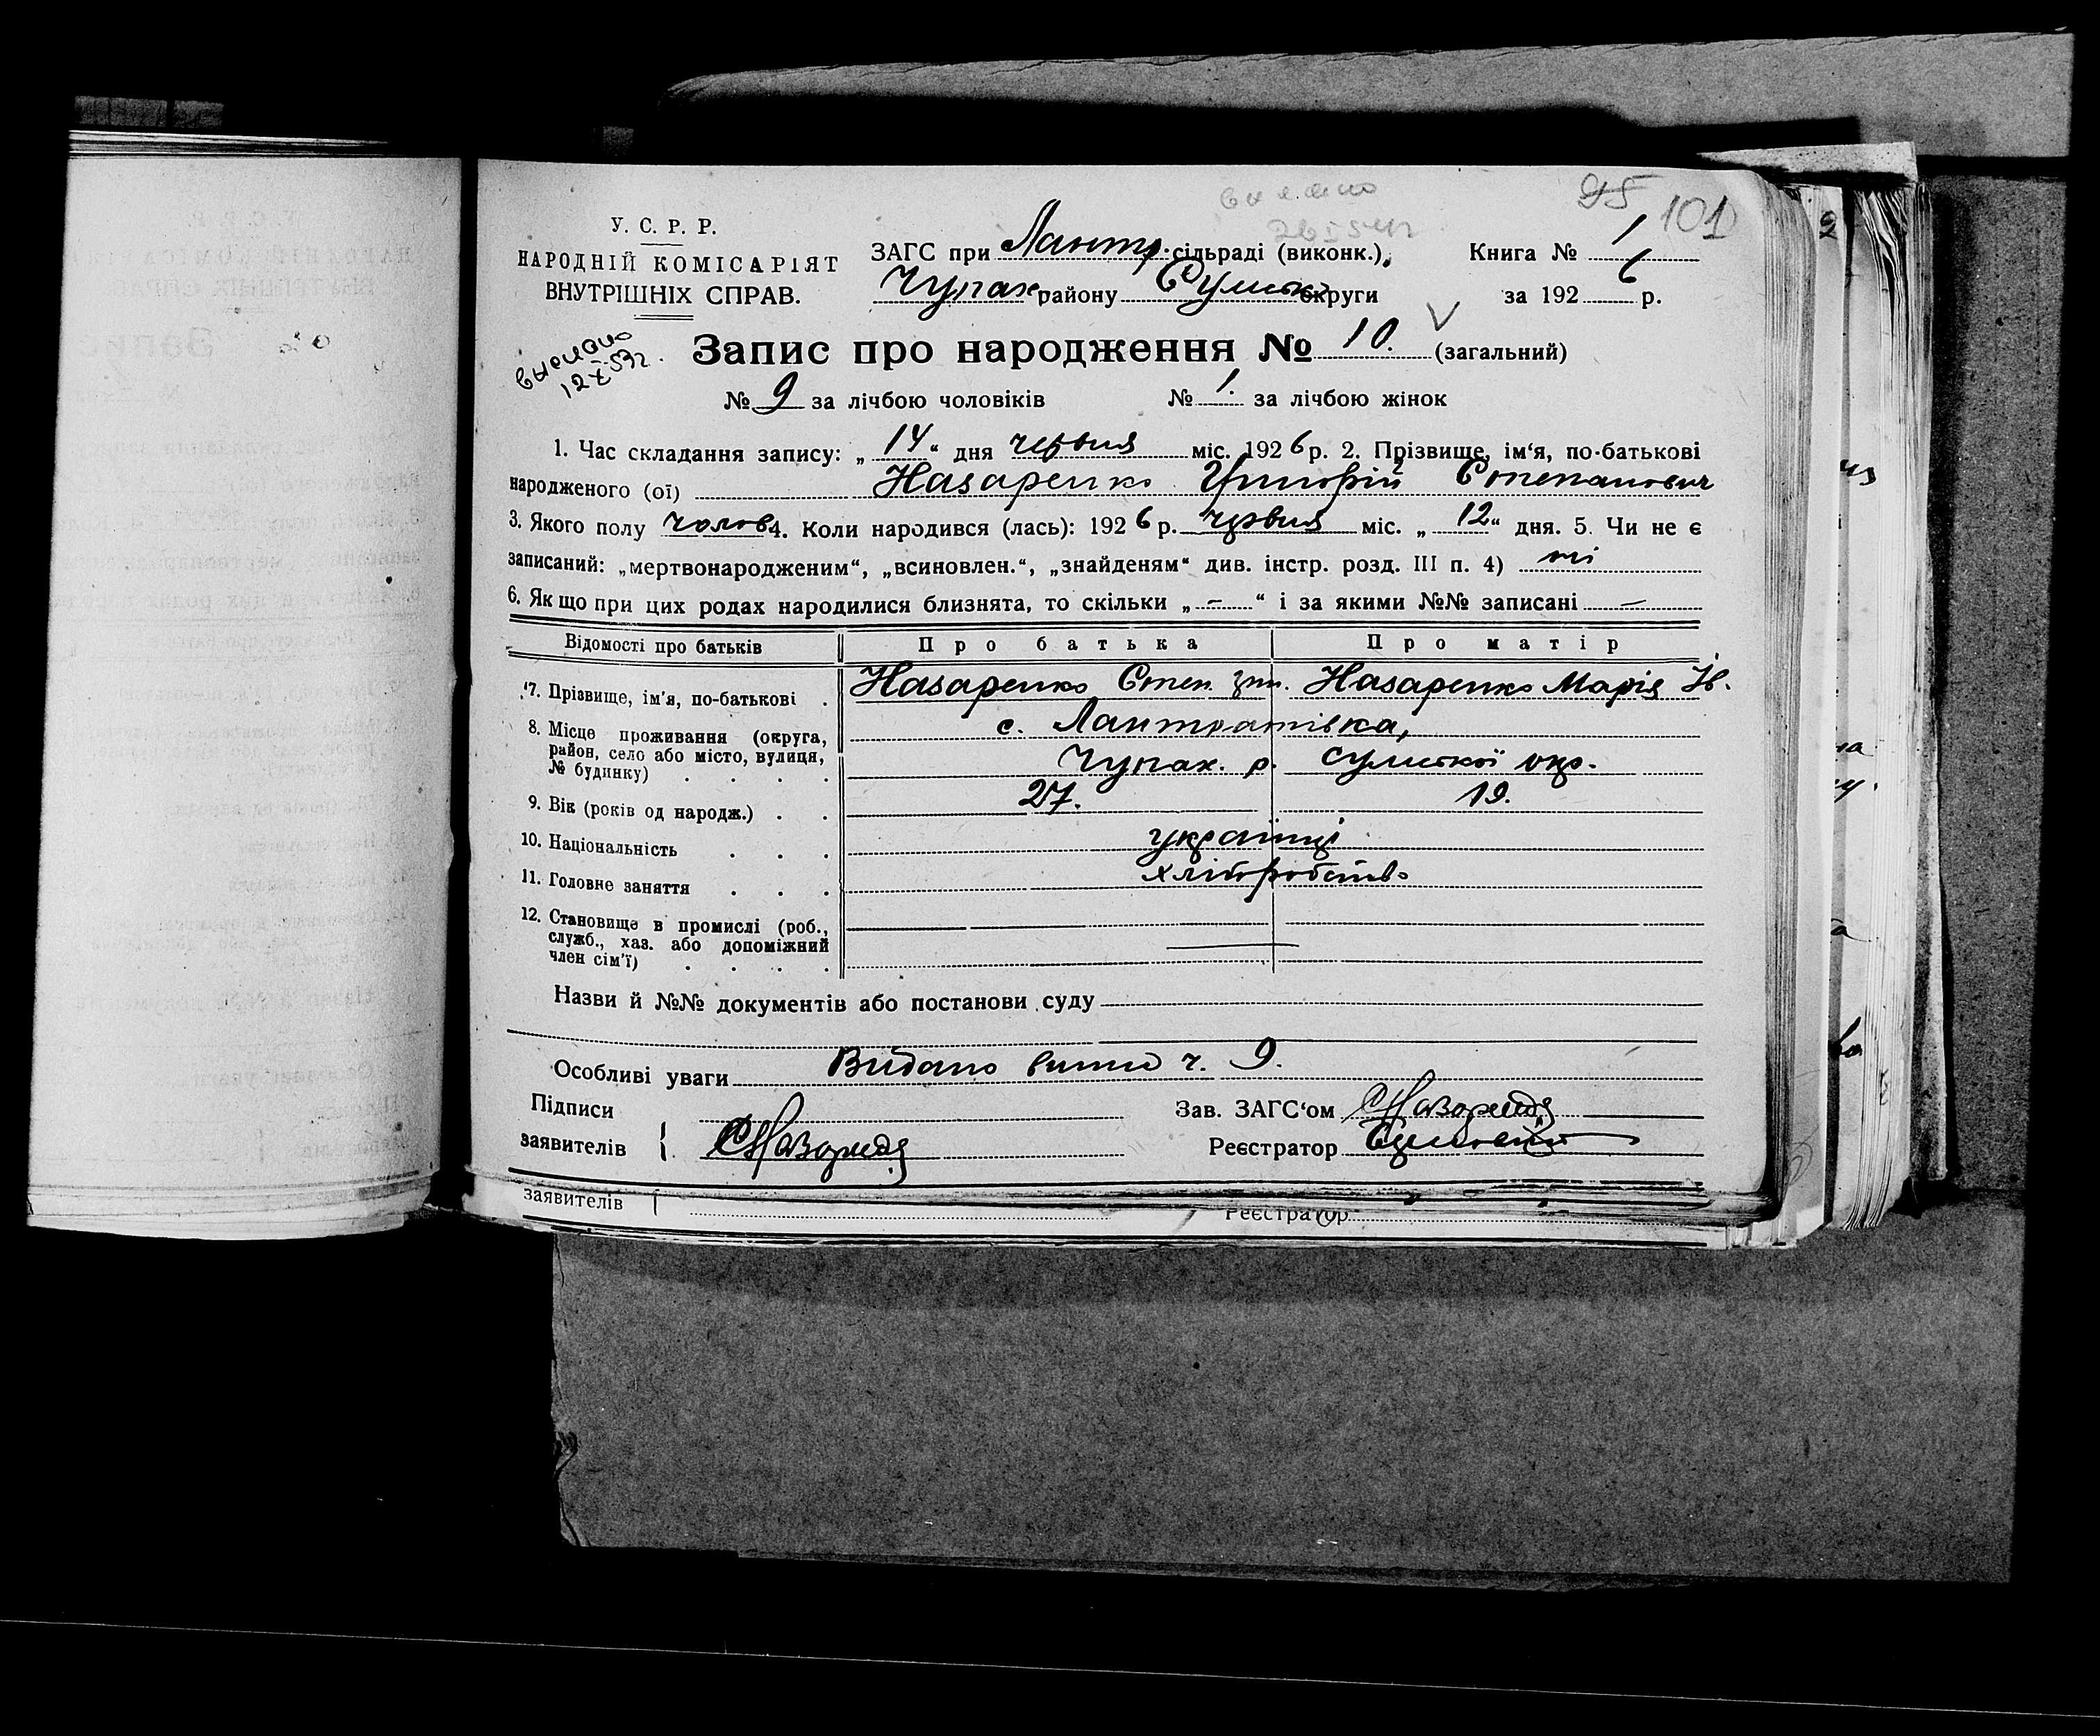 95 101
У. С. Р. Р.
НАРОДНІЙ КОМІСАРІЯТ
ВНУТРІШНІХ СПРАВ.
ЗАГС при Лантр. сільраді (виконк.), Книга № 1
Чупах району Сумськ округи за 1926 р.
выслано
Запис про народження № 10. (загальний)
№ 9 за лічбою чоловіків № 1. за лічбою жінок
1. Час складання запису: „ 14 “ дня червня міс. 1926 р. 2. Прізвище, ім'я, по-батькові
народженого (ої) Назаренко Григорій Степанович
3. Якого полу чолов 4. Коли народився (лась): 1926 р. червня міс. „ 12 “ дня. 5. Чи не є
записаний: „мертвонародженим“, „всиновлен.“, „знайденям“ див. інстр. розд. III п. 4) ні
6. Якщо при цих родах народилися близнята, то скільки „ – “ і за якими №№ записані —
Відомості про батьків Про батька Про матір
7. Прізвище, ім'я, по-батькові . Назаренко Степ. Гри. Назаренко Марія
8. Місце проживання (округа, район, село або місто, вулиця, № будинку) . . . .
с. Лантратівка,
Чупах. р. Сумської окр.
9. Вік (років од народж.) . . 27. 19.
10. Національність . . . українці
11. Головне заняття . . . хліборобство
12. Становище в промислі (роб., служб., хаз. або допоміжний член сім'ї) . . . .
Назви й №№ документів або постанови суду
Особливі уваги Видано витяг ч. 9.
Підписи Зав. ЗАГС'ом
заявителів Реєстратор
заявителів Реєстратор